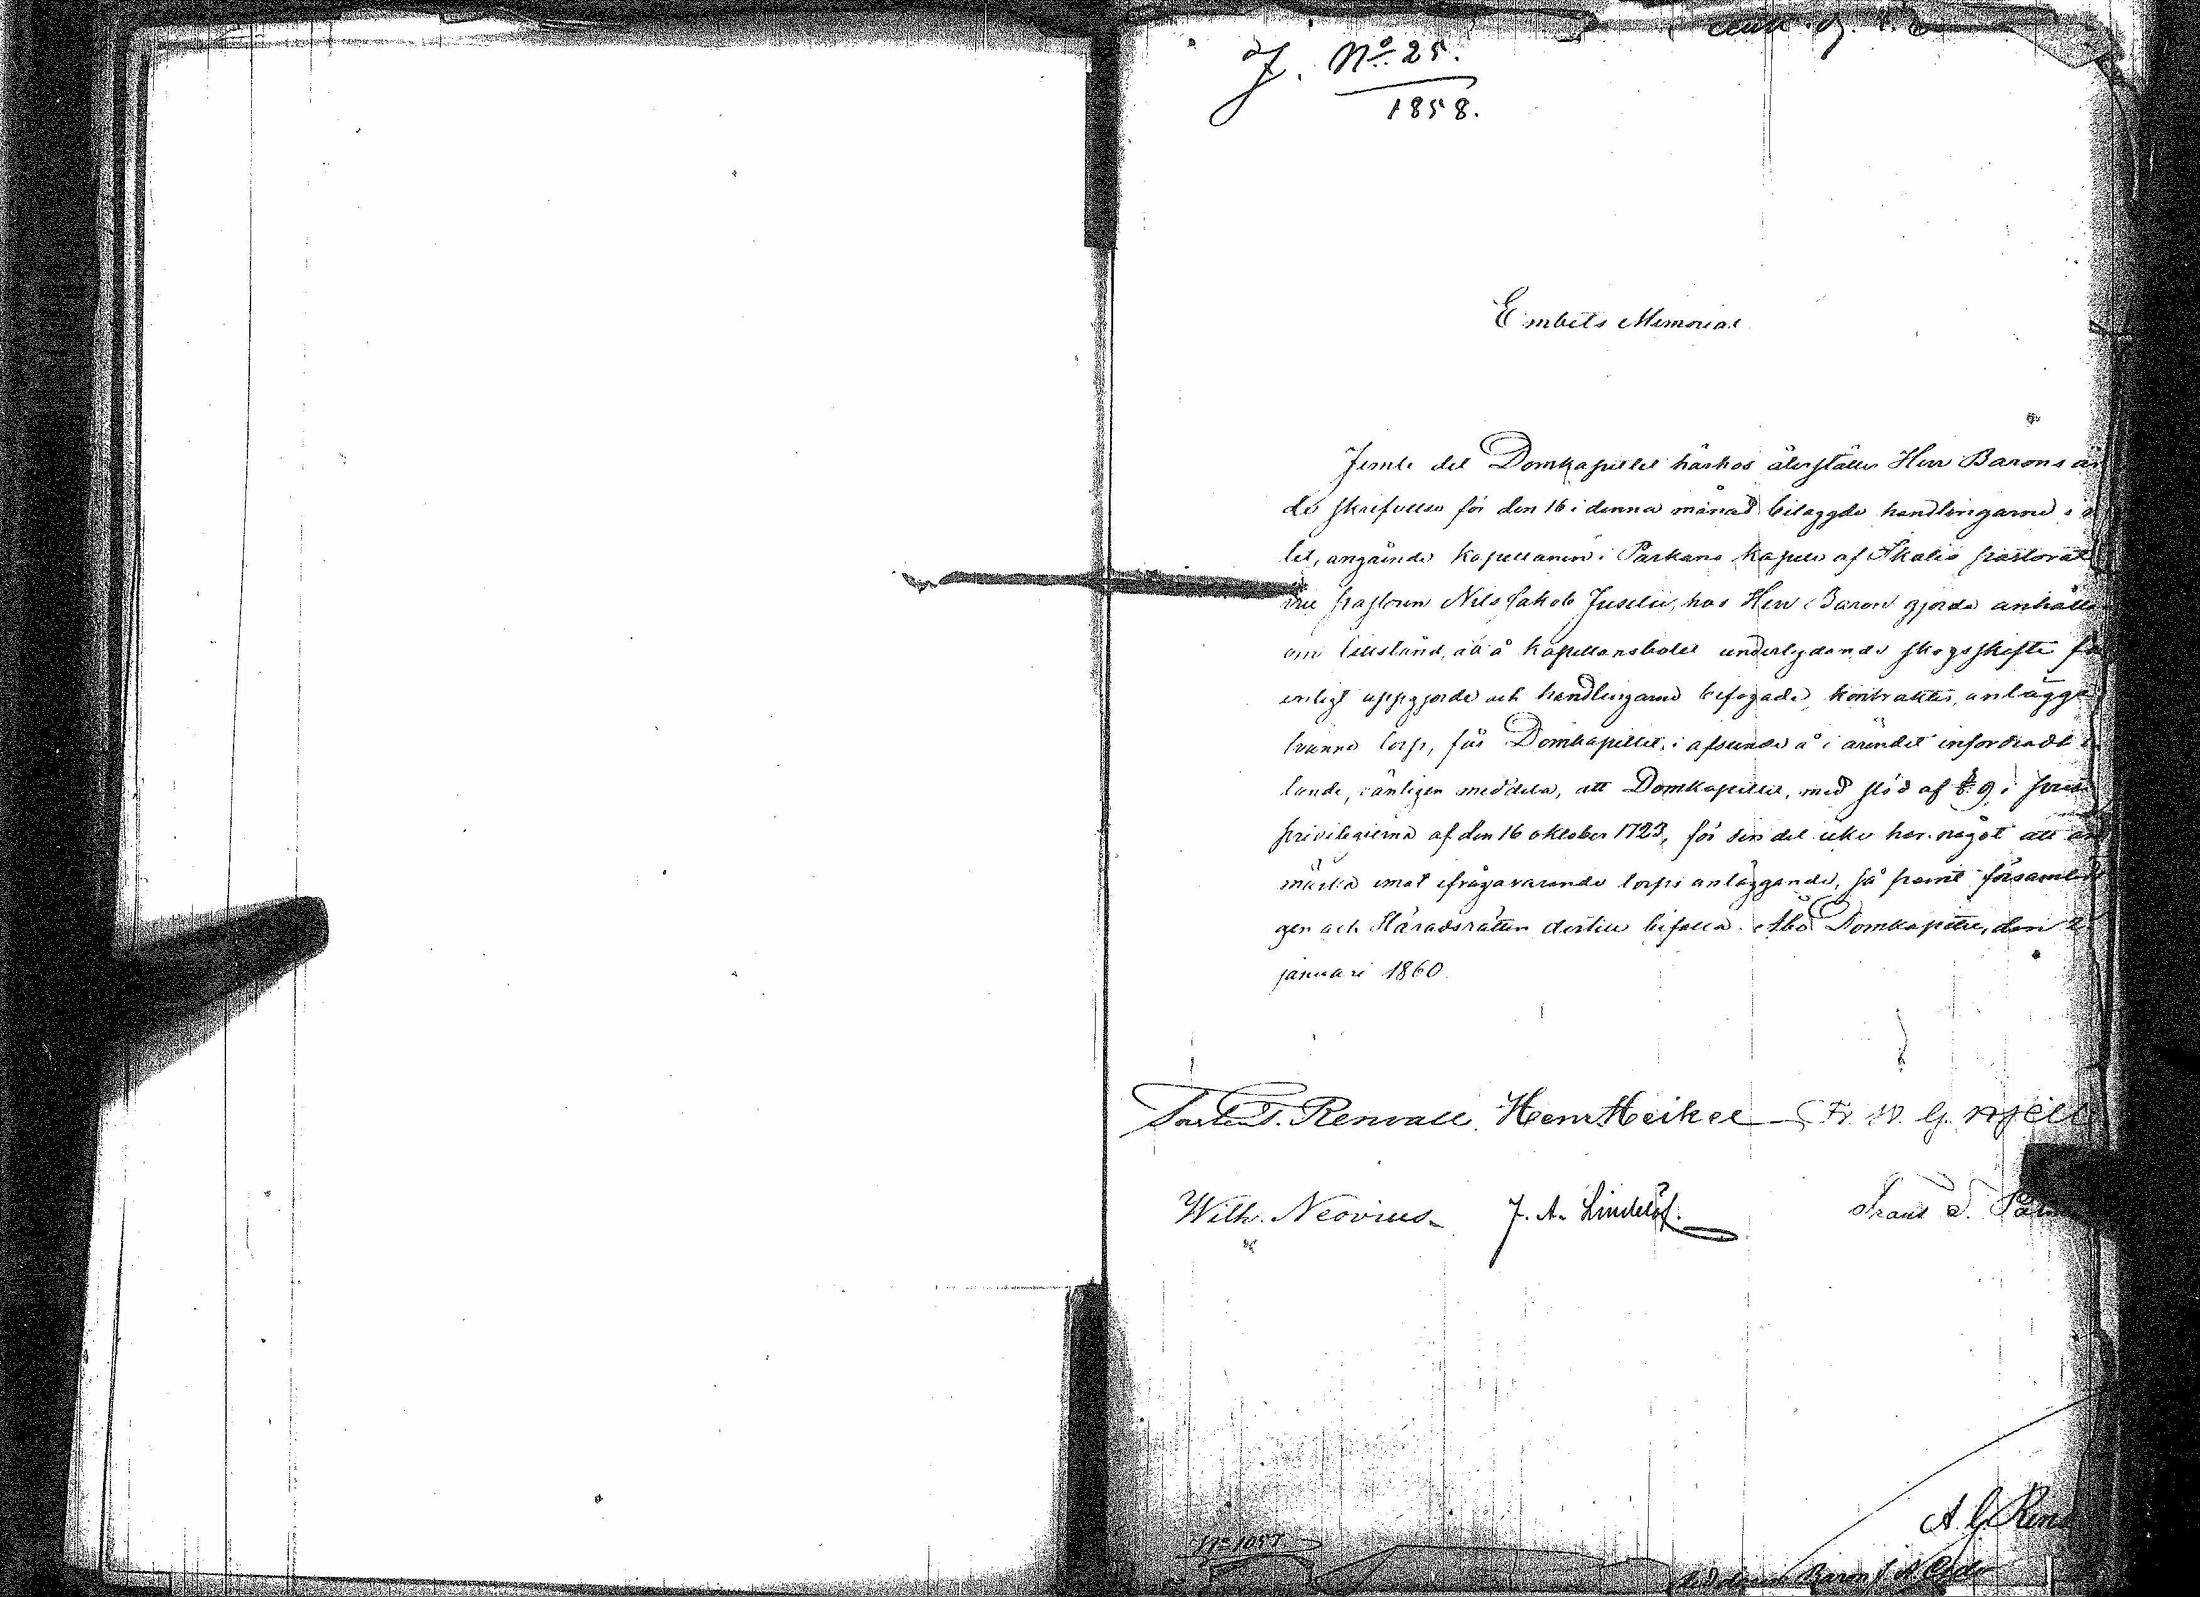 J. No 25.
1858.
Embets Memorial
Jemte det Domkapitlet härhos återställer Herr Barons
skrifvelse för den 16 i denna månad bilaggde handlingarne i
let, angående kapellanen i Parkano kapell af Ikalis pastorat
pastorn Nils Jakob Juselii, hos Herr Baron gjorda anhållan
om tillstånd, att å kapellansbolet underlydande skogsskifte få
enligt uppgjorde och handlingarne bifogade kontrakter, anlägga
tvenne torp, får Domkapitlet, i afseende å i ärendet infordradt
lande, vänligen meddela, att Domkapitlet, med stöd af § 9 i
privilegierna af den 16 oktober 1723, för sin del icke har något att an
märka emot ifrågavarande torps anläggande, så framt församlin
gen och Häradsrätten dertill bifalla. Åbo Domkapitel, den
januari 1860.
Torsten T. Renvall. Henr. Heikel Fr. W. G. Hjelt
Wilh. Neovius. J. A. Lindelöf. Frans
No 1057
A. G. Ren
Baron